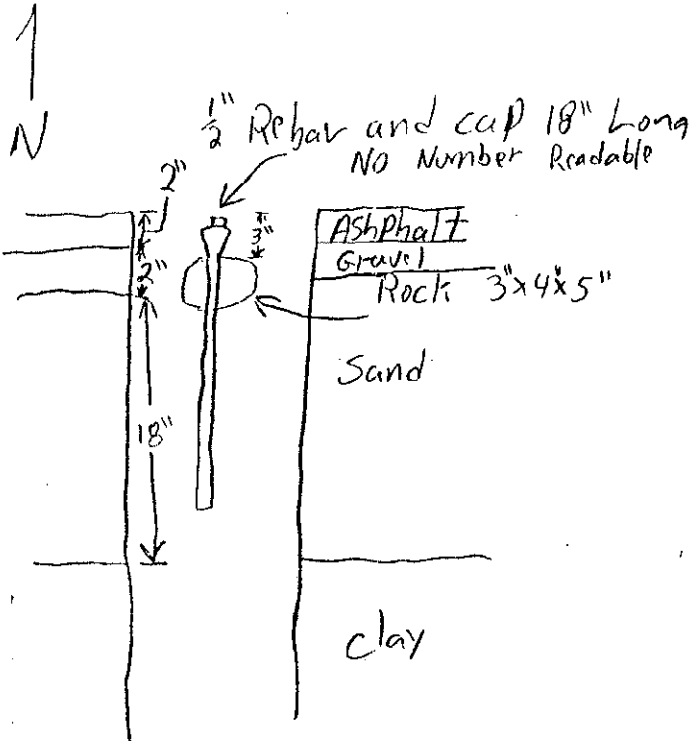 N
1/2" Rebar and cap 18" Long
No Number Readable
2"
3"
AshPhalt
2"
Gravel
Rock 3"x4"x5"
Sand
18"
Clay